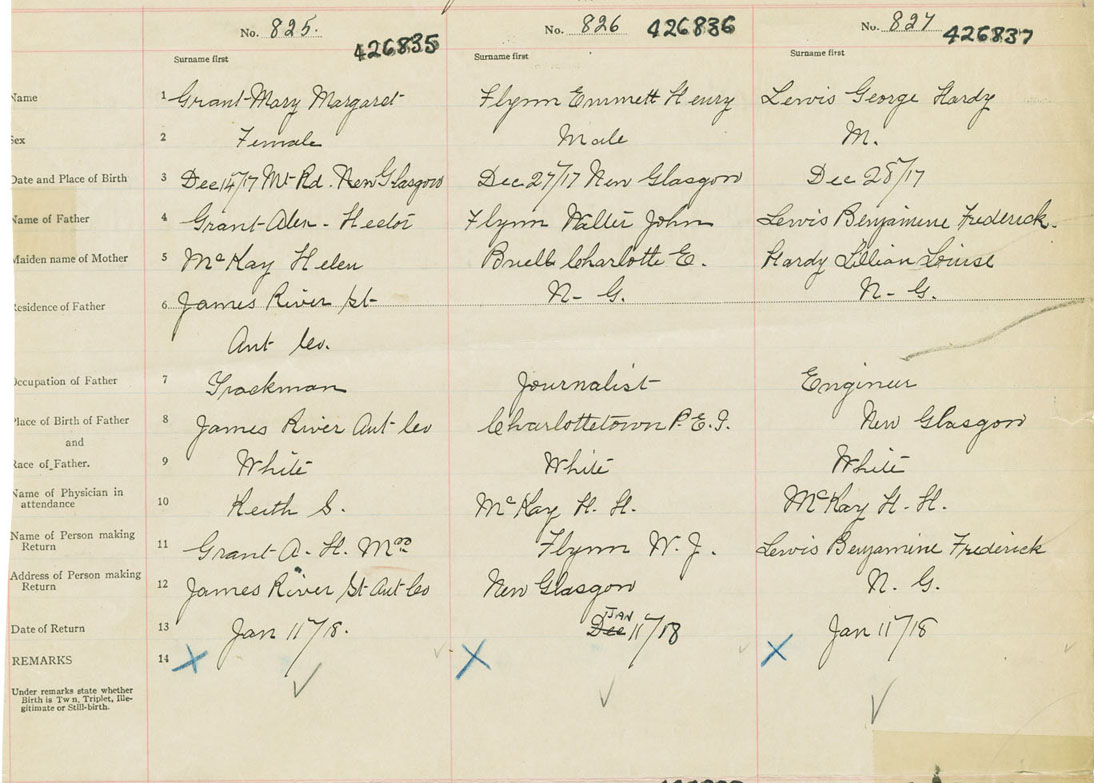 No. 825. 426835 No. 826 426836 No. 827 426837
Surname first Surname first Surname first
Name 1 Grant Mary Margaret Flynn Emmett Henry Lewis George Hardy
Sex 2 Female Male M.
Date and Place of Birth 3 Dec 14/17 Mt Rd. New Glasgow Dec 27/17 New Glasgow Dec 28/17
Name of Father 4 Grant Alex. Hector Flynn Walter John Lewis Benjamine Frederick.
Maiden name of Mother 5 McKay Helen Buell Charlotte E. Hardy Lillian Louise
Residence of Father 6 James River St N. G. N. G.
Ant Co.
Occupation of Father 7 Trackman Journalist Engineer
Place of Birth of Father 8 James River Ant Co Charlottetown P.E.I. New Glasgow
and
Race of Father. 9 White White White
Name of Physician in
attendance 10 Keith S. McKay H. H. McKay H. H.
Name of Person making
Return 11 Grant A. H. Mrs Flynn W. J. Lewis Benjamine Frederick
Address of Person making
Return 12 James River St Ant Co New Glasgow N. G.
Date of Return 13 Jan 11/18. Dec JAN 11/18 Jan 11/18
REMARKS 14
Under remarks state whether
Birth is Twin, Triplet, Ille-
gitimate or Still-birth.